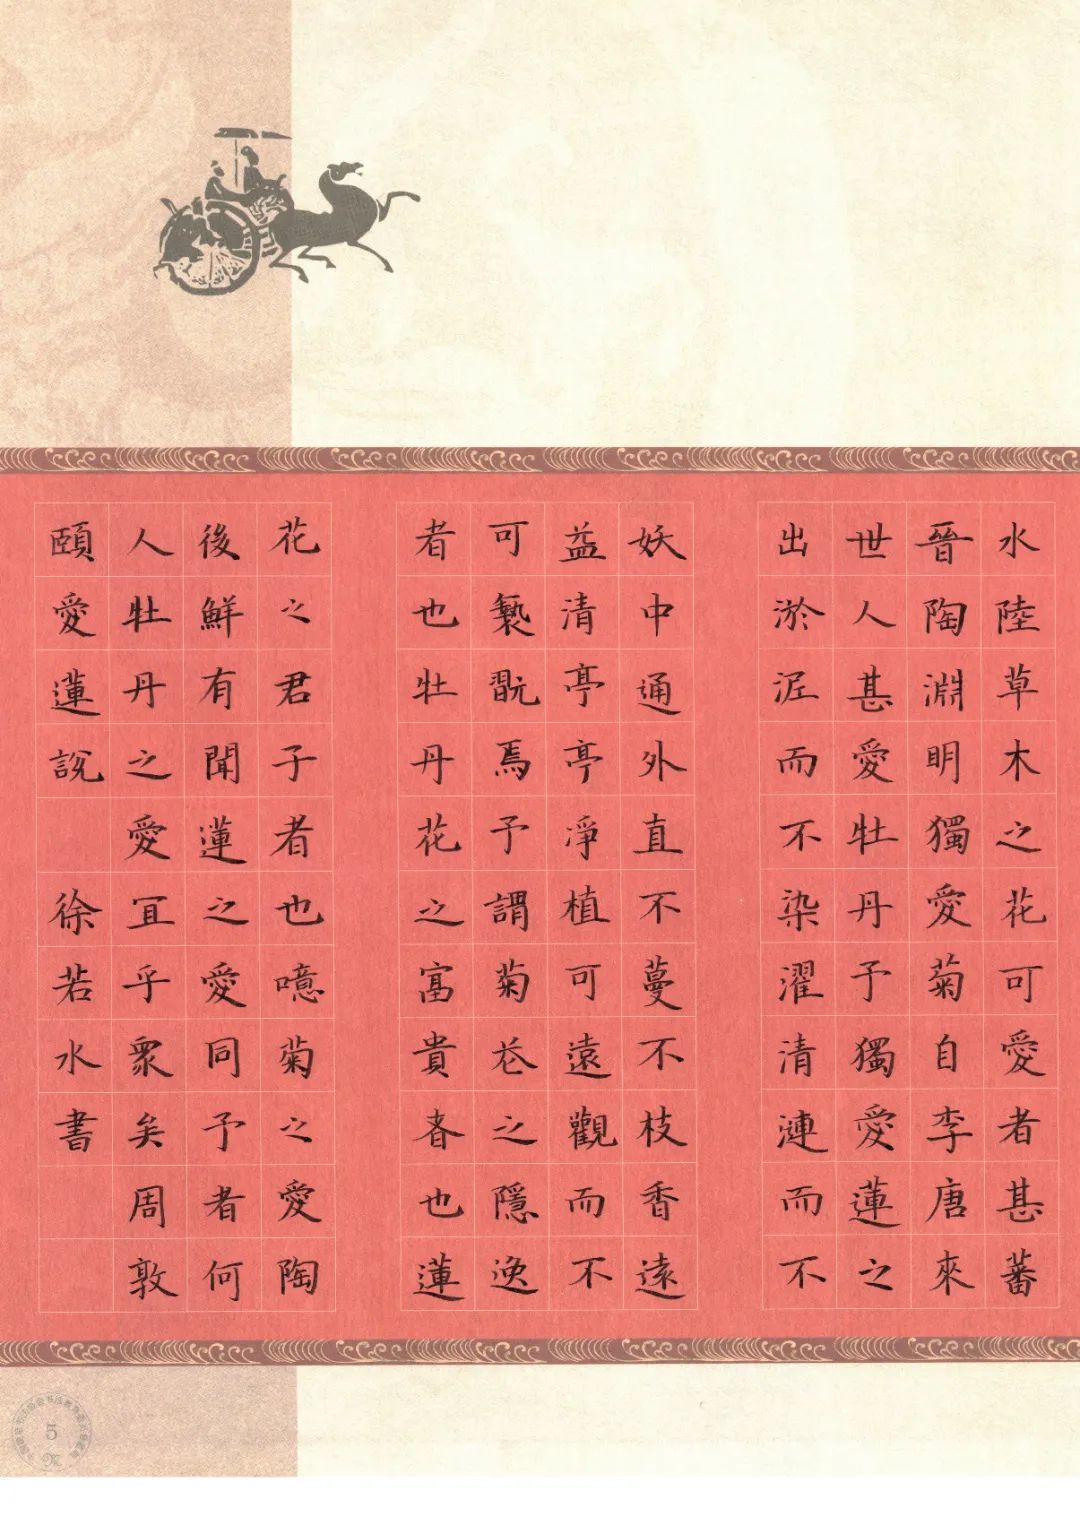 水陸草木之花可愛者甚蕃
晉陶淵明獨愛菊自李唐來
世人甚愛牡丹予獨愛蓮之
出淤泥而不染濯清漣而不
妖中通外直不蔓不枝香遠
益清亭亭淨植可遠觀而不
可褻翫焉予謂菊花之隱逸
者也牡丹花之富貴者也蓮
花之君子者也噫菊之愛陶
後鮮有聞蓮之愛同予者何
人牡丹之愛宜乎衆矣周敦
頤愛蓮說 徐若水書
5